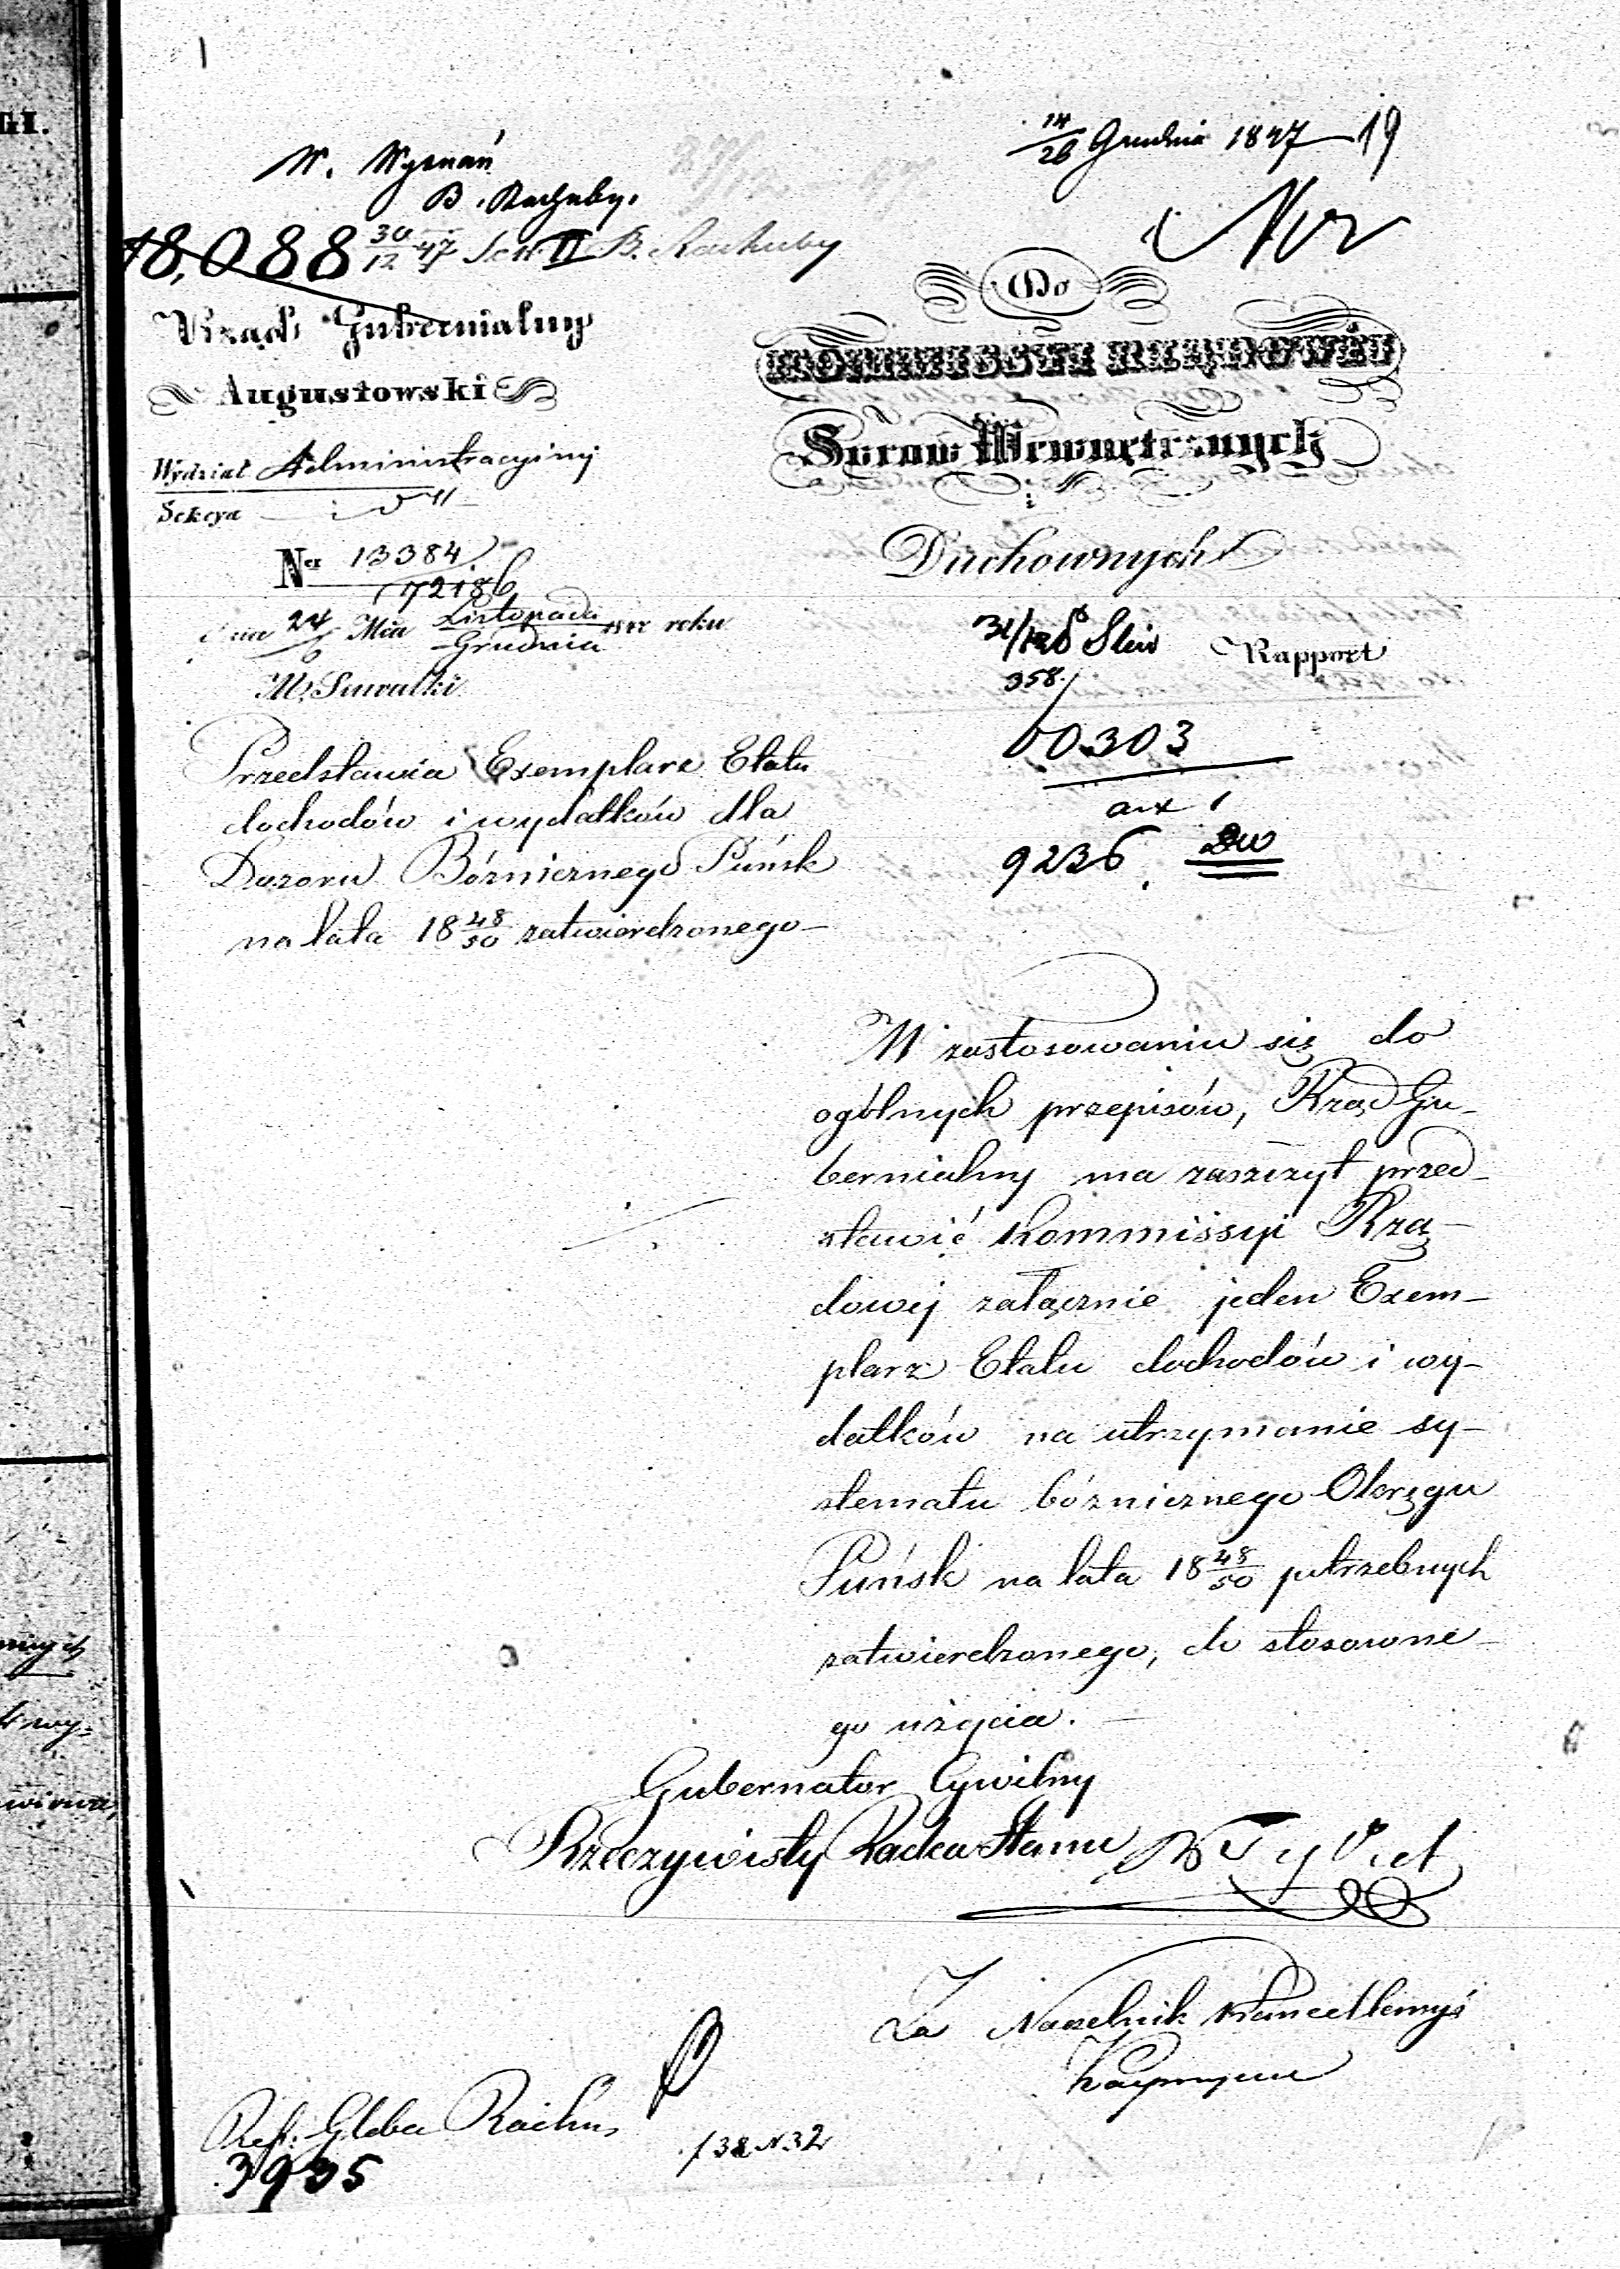 14/26 Grudnia 1847 19
W. Wyznań
B. Rachuby.
18,088 30/12 47 Sek II B. Rachuby
Rząd Gubernialny
Augustowski
Wydział Administracyiny
Sekcya
Ner 13384/72186
dnia 24/6 Mca Listopada/Grudnia 1847 roku
M. Suwałki
Do
KOMMISSYI RZĄDOWÉY
Spraw Wewnętrznych
i
Duchownych
Rapport
358.
60303
9236.
Przedstawia Exemplarz Etatu
dochodów i wydatków dla
Dozoru Bóżnicznego Puńsk
na lata 18 48/50 zatwierdzonego
W zastosowaniu się do
ogólnych przepisów, Rząd Gu-
bernialny ma zaszczyt przed-
stawić Kommissyi Rzą-
dowej załącznie jeden Exem-
plarz Etatu dochodów i wy-
datków na utrzymanie sy-
stematu bóżnicznego Okręgu
Puńsk na lata 18 48/50 potrzebnych
zatwierdzonego, do stosowne-
go użycia.
Gubernator Cywilny
Rzeczywisty Radca Stanu
Za Naczelnik Kancellaryi
Ref: Gleba Rachu
3935
138 N 32